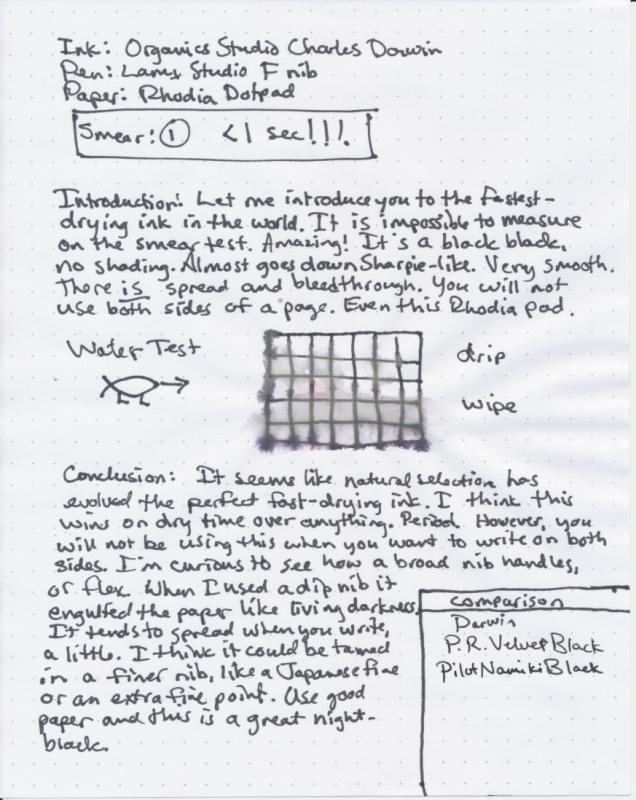 Ink: Organics Studio Charles Darwin
Pen: Lamy Studio F nib
Paper: Rhodia Dotpad
Smear: ① <1 sec!!!.
Introduction: Let me introduce you to the fastest-
drying ink in the world. It is impossible to measure
on the smear test. Amazing! It's a black black,
no shading. Almost goes down Sharpie-like. Very smooth.
There is spread and bleedthrough. You will not
use both sides of a page. Even this Rhodia pad.
Water Test
drip
wipe
Conclusion: It seems like natural selection has
evolved the perfect fast-drying ink. I think this
wins on dry time over anything. Period. However, you
will not be using this when you want to write on both
sides. I'm curious to see how a broad nib handles,
or flex. When I used a dip nib it
engulfed the paper like living darkness.
It tends to spread when you write,
a little. I think it could be tamed
in a finer nib, like a Japanese fine
or an extra fine point. Use good
paper and this is a great night-
black.
Comparison
Darwin
P.R. Velvet Black
Pilot Namiki Black